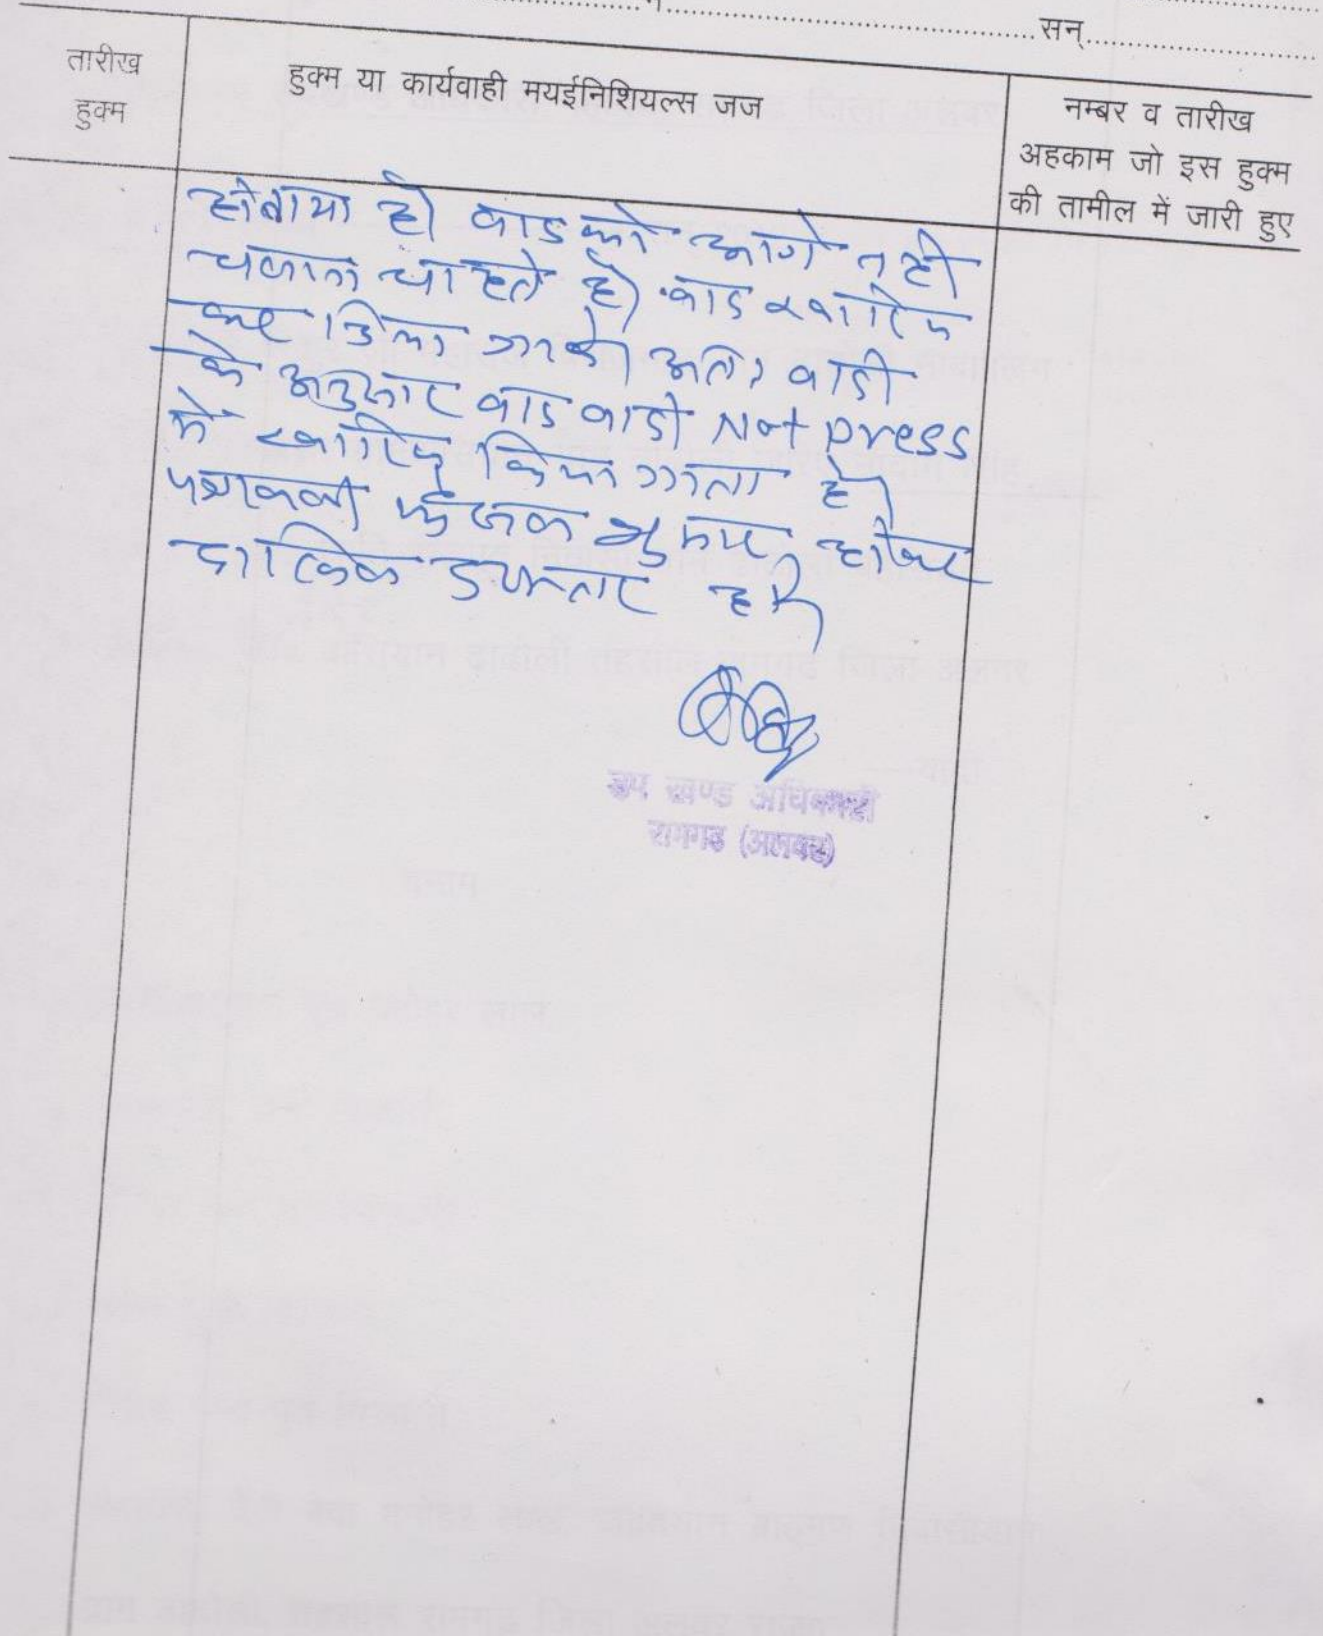 सन्
तारीख
हुक्म
हुक्म या कार्यवाही मयईनिशियल्स जज
नम्बर व तारीख
अहकाम जो इस हुक्म
की तामील में जारी हुए
है। वाद को आगे नही
चलाना चाहते है। वाद खारिज
कर दिया जावे। अतः वादी
के अनुसार वाद वादी Not press
मे खारिज किया जाता है।
पत्रावली फैसल शुमार होकर
दाखिल दफ्तर हो।
उप खण्ड अधिकारी
रामगढ (अलवर)